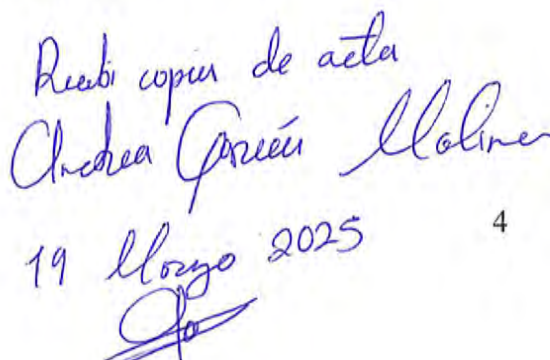 Recibi copia de acta
Andrea García Molina
19 Marzo 2025
4